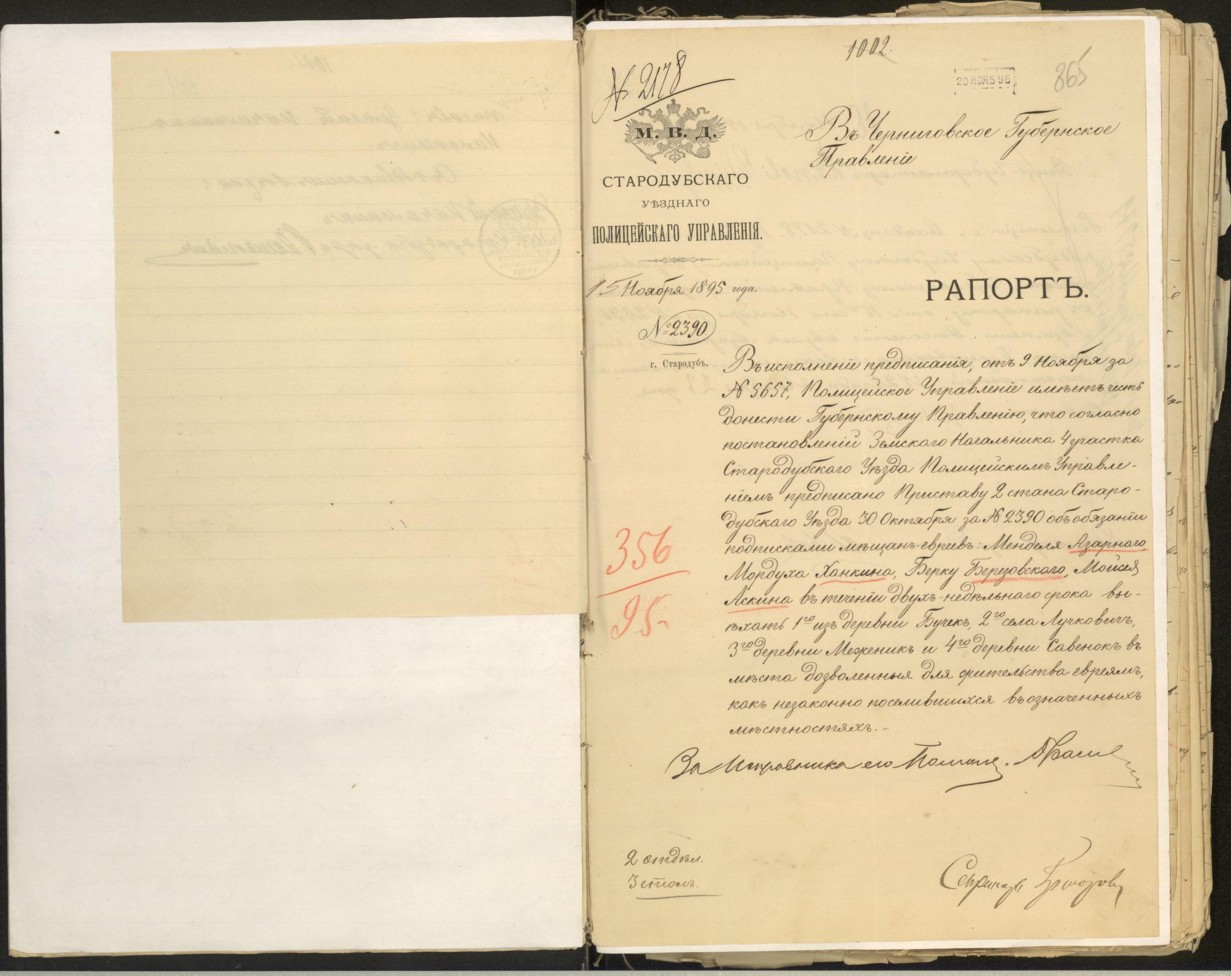 1002.
№ 2178
20 НОЯБ 95
865
М. В. Д.
СТАРОДУБСКАГО
УѢЗДНАГО
ПОЛИЦЕЙСКАГО УПРАВЛЕНІЯ.
15 Ноября 1895 года.
№ 2390
г. Стародубъ.
Въ Черниговское Губернское
Правленіе
РАПОРТЪ.
Въ исполненіе предписанія, отъ 9 Ноября за
№ 5657, Полицейское Управленіе имѣетъ честь
донести Губернскому Правленію, что согласно
постановленій Земскаго Начальника 4 участка
Стародубскаго Уѣзда Полицейскимъ Управле-
ніемъ предписано Приставу 2 стана Старо-
дубскаго Уѣзда 30 Октября за № 2390 объ обязаніи
подписками мѣщанъ-евреевъ: Менделя Азарнаго,
Мордуха Ханкина, Берку Березовскаго, Мойсея
Аскина въ теченіи двухъ-недѣльнаго срока вы-
ѣхать 1го изъ деревни Бучекъ, 2го села Лучковичъ,
3го деревни Меженикъ и 4го деревни Савенокъ въ
мѣста дозволенныя для жительства евреямъ,
какъ незаконно поселившихся въ означенныхъ
мѣстностяхъ.-
356
95.
За Исправника его Помощн.
2 отдѣл.
3 столъ.
Секретарь